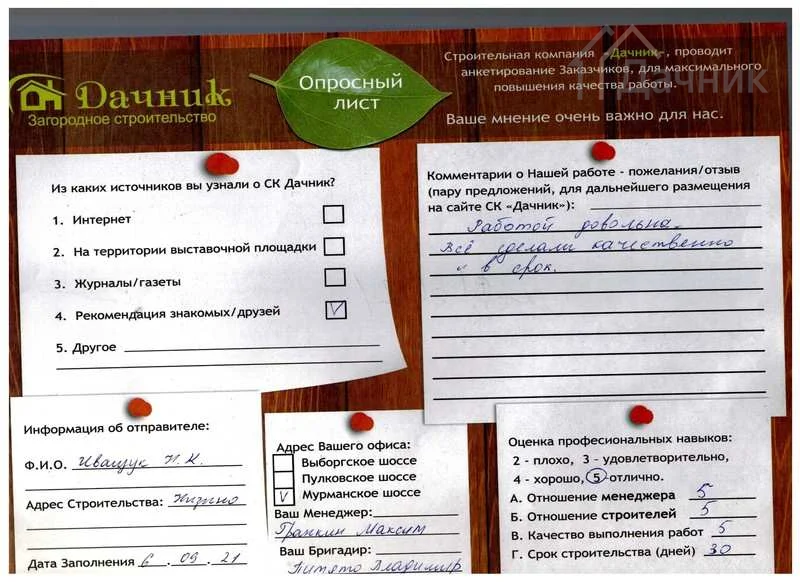 Дачник
Загородное строительство
Опросный
лист
Строительная компания «Дачник», проводит
анкетирование Заказчиков, для максимального
повышения качества работы.
Ваше мнение очень важно для нас.
Дачник
Из каких источников вы узнали о СК Дачник?
1. Интернет
2. На территории выставочной площадки
3. Журналы/газеты
4. Рекомендация знакомых/друзей V
5. Другое
Комментарии о Нашей работе - пожелания/отзыв
(пару предложений, для дальнейшего размещения
на сайте СК «Дачник»):
Работой довольна.
Всё сделали качественно
и в срок.
Информация об отправителе:
Ф.И.О. Иващук Н.К.
Адрес Строительства: Низино
Дата Заполнения 6 . 09 . 21
Адрес Вашего офиса:
Выборгское шоссе
Пулковское шоссе
V Мурманское шоссе
Ваш Менеджер:
Максим
Ваш Бригадир:
Владимир
Оценка професиональных навыков:
2 - плохо, 3 - удовлетворительно,
4 - хорошо, 5 -отлично.
А. Отношение менеджера 5
Б. Отношение строителей 5
В. Качество выполнения работ 5
Г. Срок строительства (дней) 30